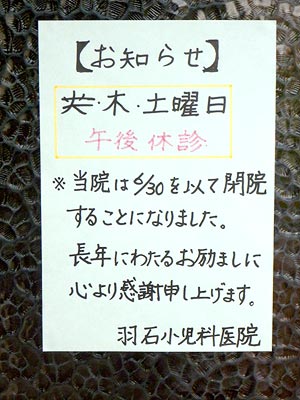 【お知らせ】
・木・土曜日
午後 休診
※当院は6/30を以て閉院
することになりました。
長年にわたるお励ましに
心より感謝申し上げます。
羽石小児科医院